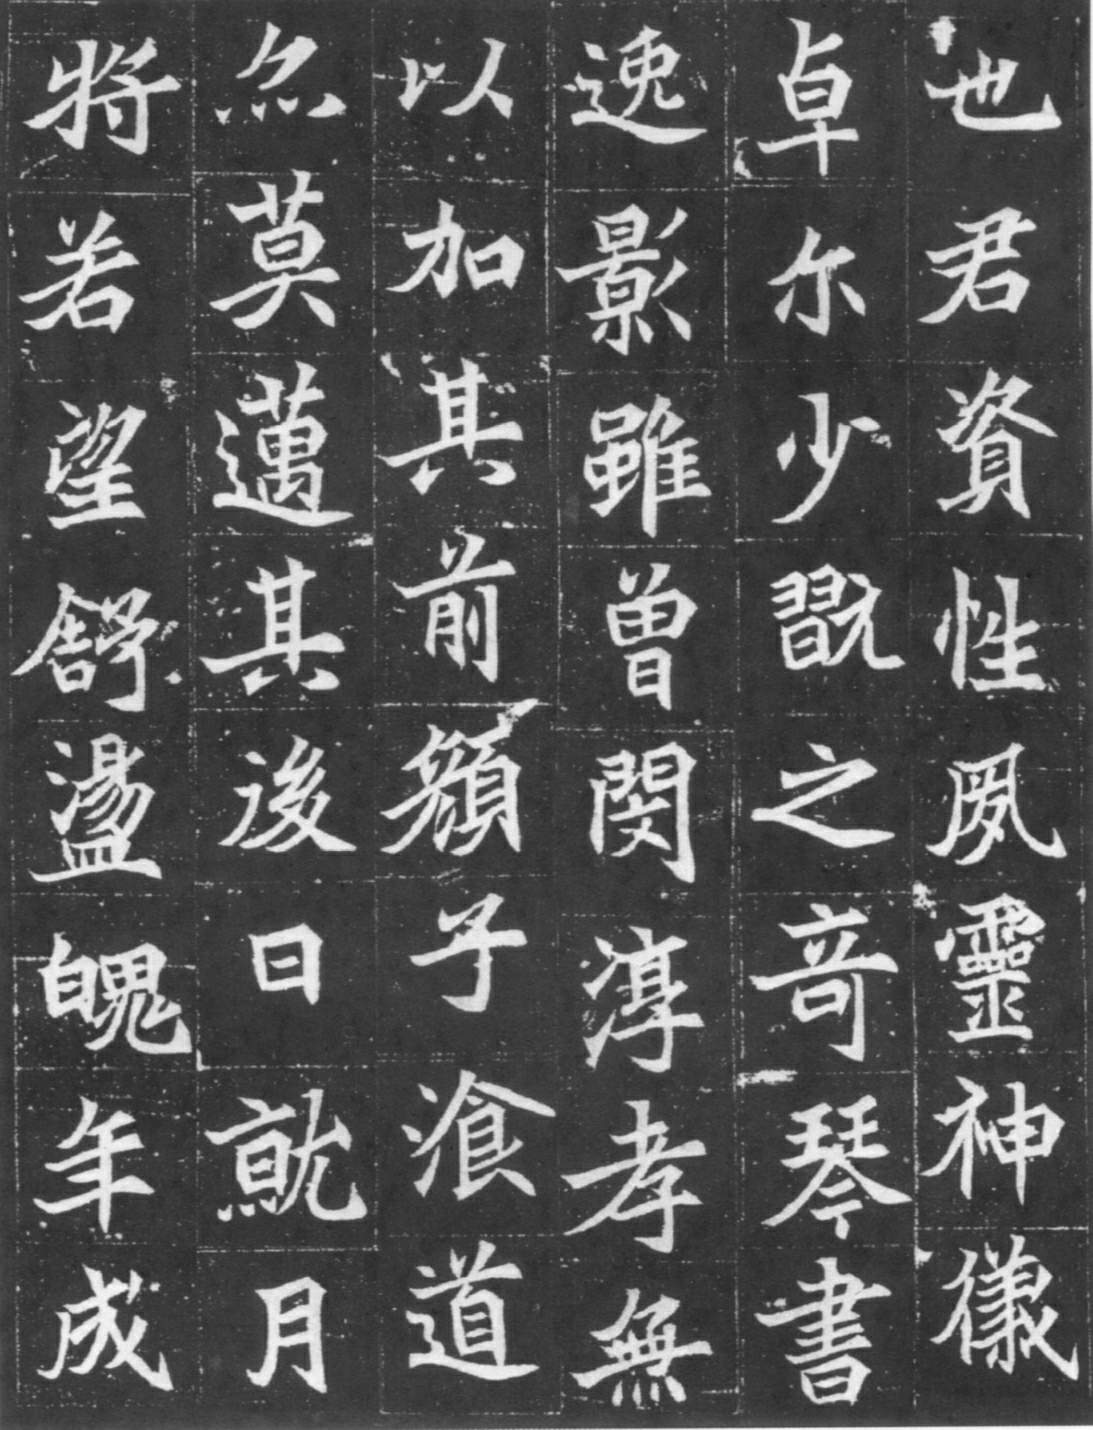 也君資性夙靈神儀
卓尓少翫之奇琴書
逸影雖曾閔淳孝無
以加其前顏子湌道
亦莫邁其後日就月
將若望舒盪魄年成